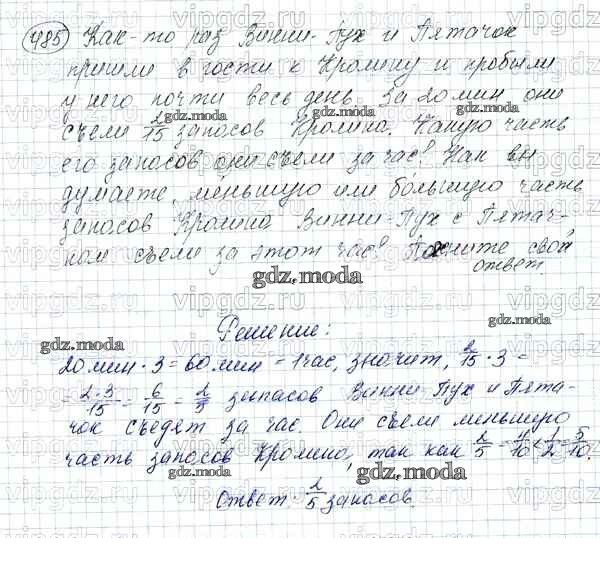 485 Как-то раз Винни-Пух и Пятачок
пришли в гости к Кролику и пробыли
у него почти весь день. За 20 мин они
съели 2/15 запасов Кролика. Какую часть
его запасов они съели за час? Как вы
думаете, меньшую или большую часть
запасов Кролика Винни-Пух с Пятач-
ком съели за этот час? Поясните свой
ответ
gdz.moda
Решение:
20 мин · 3 = 60 мин = 1 час, значит, 2/15 · 3 =
= 2·3/15 = 6/15 = 2/5 запасов Винни Пух и Пята-
чок съедят за час. Они съели меньшую
часть запасов Кролика, так как 2/5 = 4/10 < 1/2 = 5/10.
Ответ: 2/5 запасов.